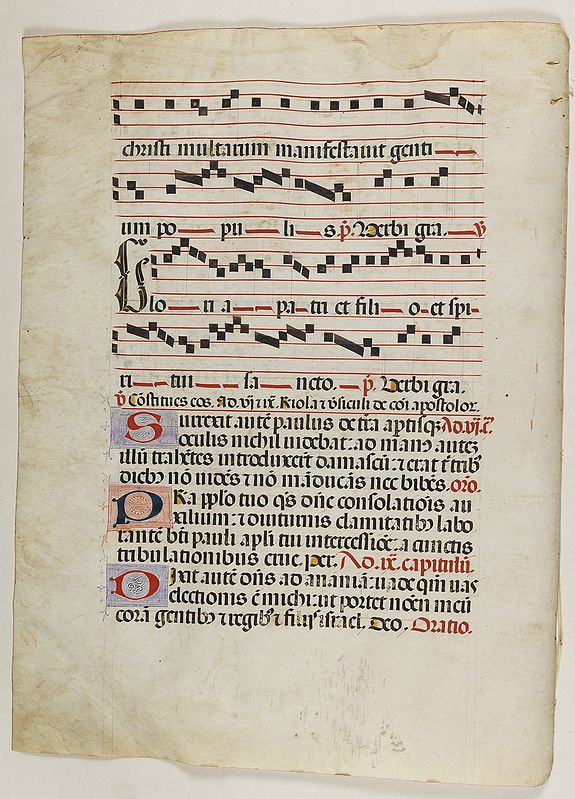 christi multarum manifestavit genti
um po pu li s. p̄. Verbi gra. v̄
Glo ri a pa tri et fili o et spi
ri tui sa ncto. p̄. Verbi gra.
v̄ Cōstitues eos. Ad. vj ⁊ ix. R̄iola ⁊ v̄siculi de cōi apostolor.
Surrexit autē paulus de t̄ra aptisq₃ Ad. vj. c̄.
oculis nichil videbat: ad manꝰ autez
illū trahētes introduxerūt damascū: ⁊ erat ī trib
dieb₃ nō vidēs ⁊ nō māducās nec bibēs. oro.
Pra pplo tuo q̄s dn̄e consolatiōis au
xilium: ⁊ diuturnis clamitatib₃ labo
rantē bti pauli apli tui intercessiōe: a cunctis
tribulationibus erue per. Ad. ix. capitulū.
Dixit autē dn̄s ad ananiā: vade qm̄ vas
electionis ē michi: ut portet nōen meū
corā gentib₃ ⁊ regib₃ ⁊ filijs israel. Deo. Oratio.